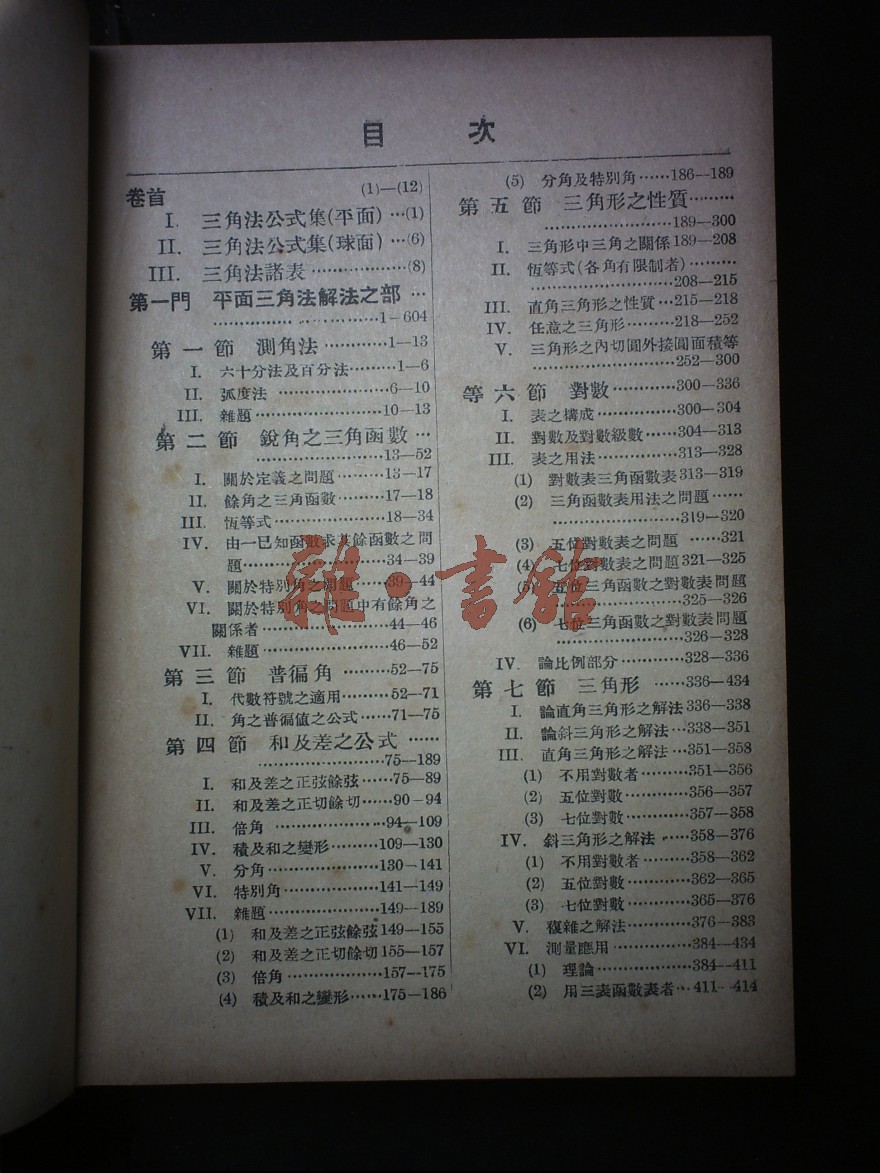 目 次
卷首 (1)—(12)
I. 三角法公式集(平面) …(1)
II. 三角法公式集(球面) …(6)
III. 三角法諸表………………(8)
第一門 平面三角法解法之部 …
…………………………1–604
第一節 測角法…………1—13
I. 六十分法及百分法………1—6
II. 弧度法 …………………6—10
III. 雜題……………………10—13
第二節 銳角之三角函數…
……………………13—52
I. 關於定義之問題………13—17
II. 餘角之三角函數………17—18
III. 恆等式…………………18—34
IV. 由一已知函數求其餘函數之問
題………………………34—39
V. 關於特別角之問題……39—44
VI. 關於特別角之問題中有餘角之
關係者…………………44—46
VII. 雜題……………………46—52
第三節 普徧角 ………52—75
I. 代數符號之適用………52—71
II. 角之普徧值之公式……71—75
第四節 和及差之公式 ……
……………………75—189
I. 和及差之正弦餘弦……75—89
II. 和及差之正切餘切……90–94
III. 倍角 …………………94—109
IV. 積及和之變形………109—130
V. 分角…………………130–141
VI. 特別角………………141—149
VII. 雜題…………………149—189
(1) 和及差之正弦餘弦149—155
(2) 和及差之正切餘切155—157
(3) 倍角………………157—175
(4) 積及和之變形……175—186
(5) 分角及特別角……186—189
第五節 三角形之性質………
…………………………189—300
I. 三角形中三角之關係189—208
II. 恆等式(各角有限制者)………
…………………………208—215
III. 直角三角形之性質…215—218
IV. 任意之三角形………218—252
V. 三角形之內切圓外接圓面積等
…………………………252—300
等六節 對數…………300—336
I. 表之構成……………300—304
II. 對數及對數級數……304—313
III. 表之用法……………313—328
(1) 對數表三角函數表313—319
(2) 三角函數表用法之問題……
……………………319—320
(3) 五位對數表之問題 ……321
(4) 七位對數表之問題321—325
(5) 五位三角函數之對數表問題
……………………325—326
(6) 七位三角函數之對數表問題
……………………326—328
IV. 論比例部分…………328—336
第七節 三角形 ……336—434
I. 論直角三角形之解法336—338
II. 論斜三角形之解法…338—351
III. 直角三角形之解法…351—358
(1) 不用對數者………351—356
(2) 五位對數…………356—357
(3) 七位對數…………357—358
IV. 斜三角形之解法 ……358—376
(1) 不用對數者………358—362
(2) 五位對數…………362—365
(3) 七位對數…………365—376
V. 複雜之解法…………376—383
VI. 測量應用……………384—434
(1) 理論………………384—411
(2) 用三表函數表者…411–414
雜·書館